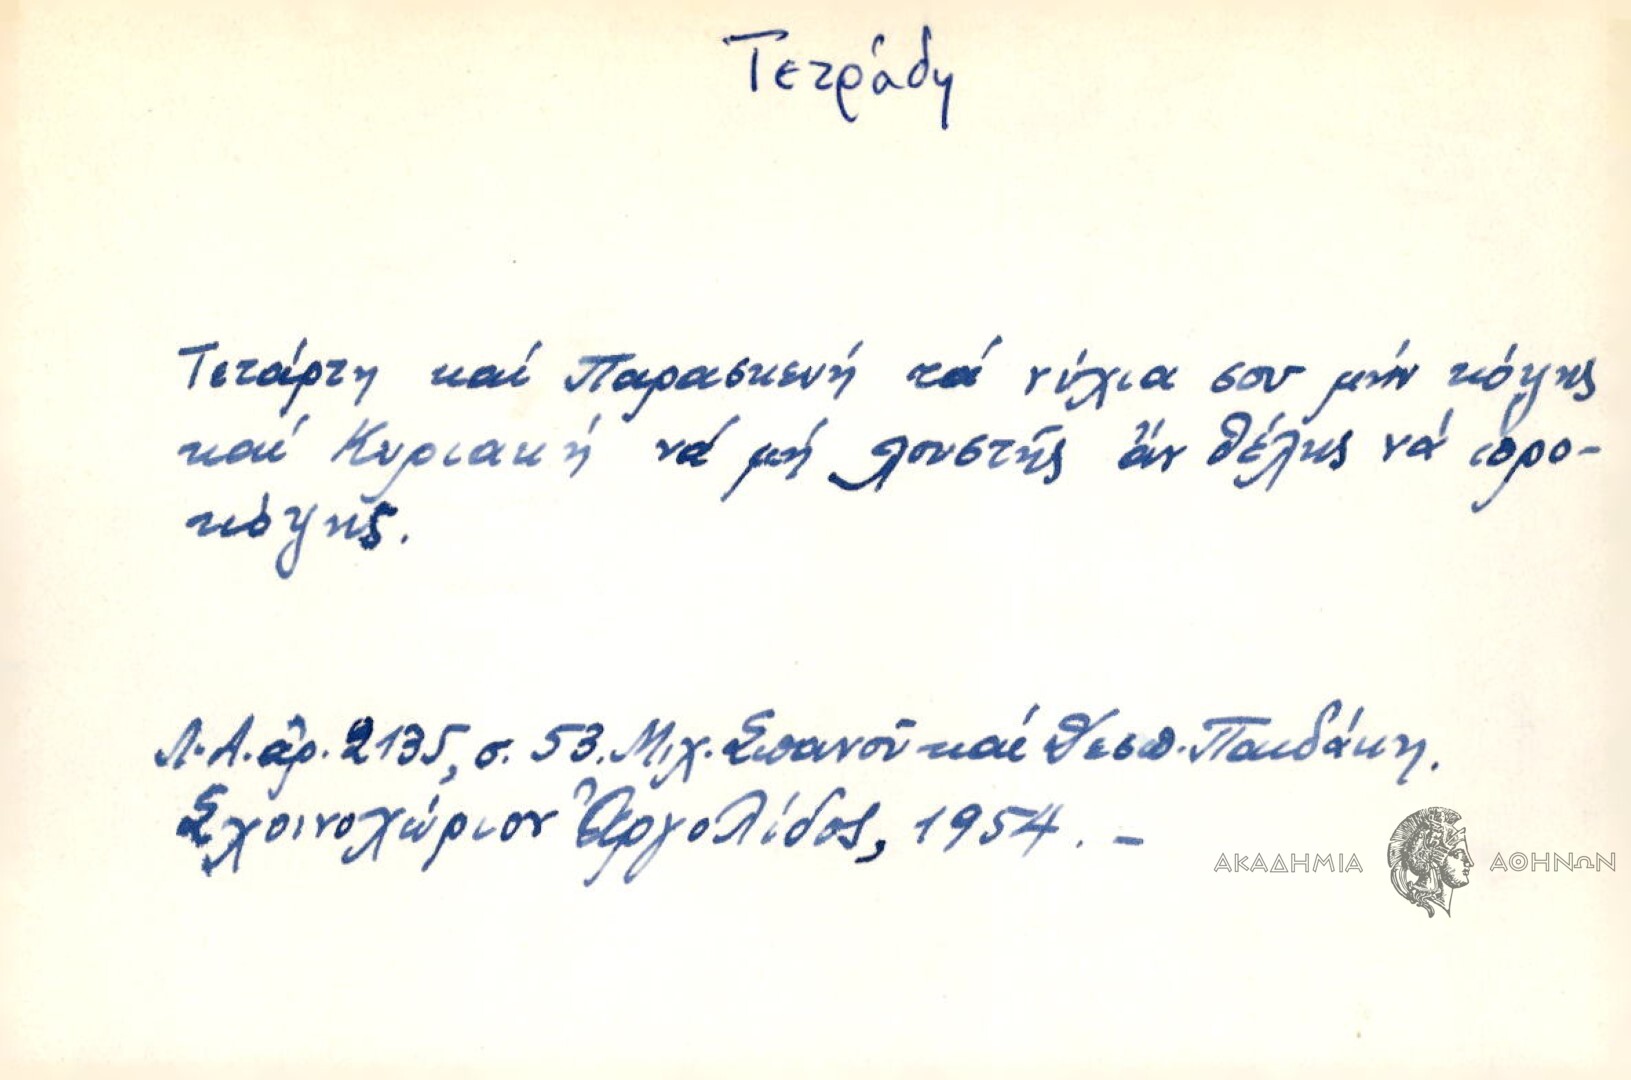 Τετράδη
Τετάρτη καί Παρασκευή τά νύχια σου μήν κόψης
καί Κυριακή νά μή λουστῆς ἄν θέλης νά προ-
κόψης.
Λ.Α. ἀρ. 2135, σ. 53. Μιχ. Σπανοῦ καί Θεσπ. Παιδάκη.
Σχοινοχώριον Ἀργολίδος, 1954. –
ΑΚΑΔΗΜΙΑ ΑΘΗΝΩΝ